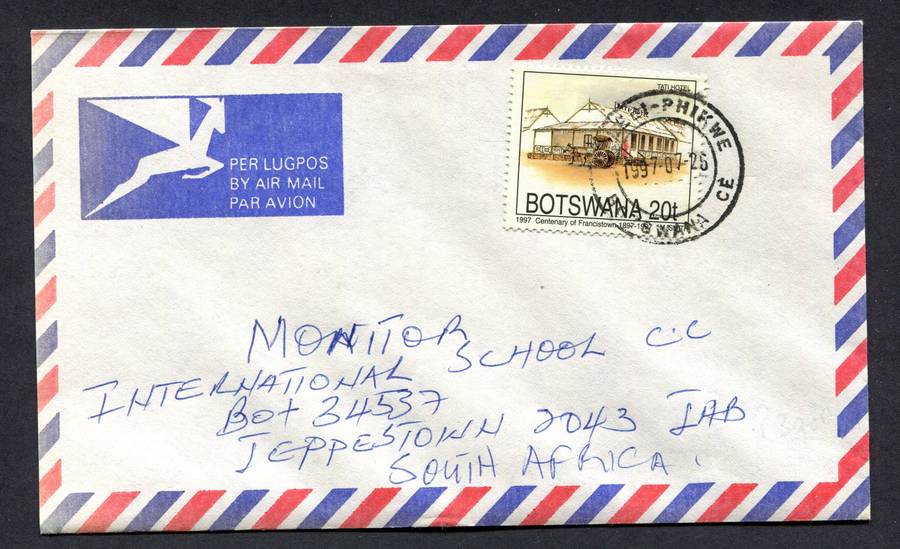 PER LUGPOS
BY AIR MAIL
PAR AVION
TATI HOTEL
BOTSWANA 20t
1997 Centenary of Francistown 1897-1997
-PHIKWE
1997-07-25
SWANA CE
MONITOR
INTERNATIONAL SCHOOL C.C
BOX 34537
JEPPESTOWN 2043 JHB
SOUTH AFRICA.